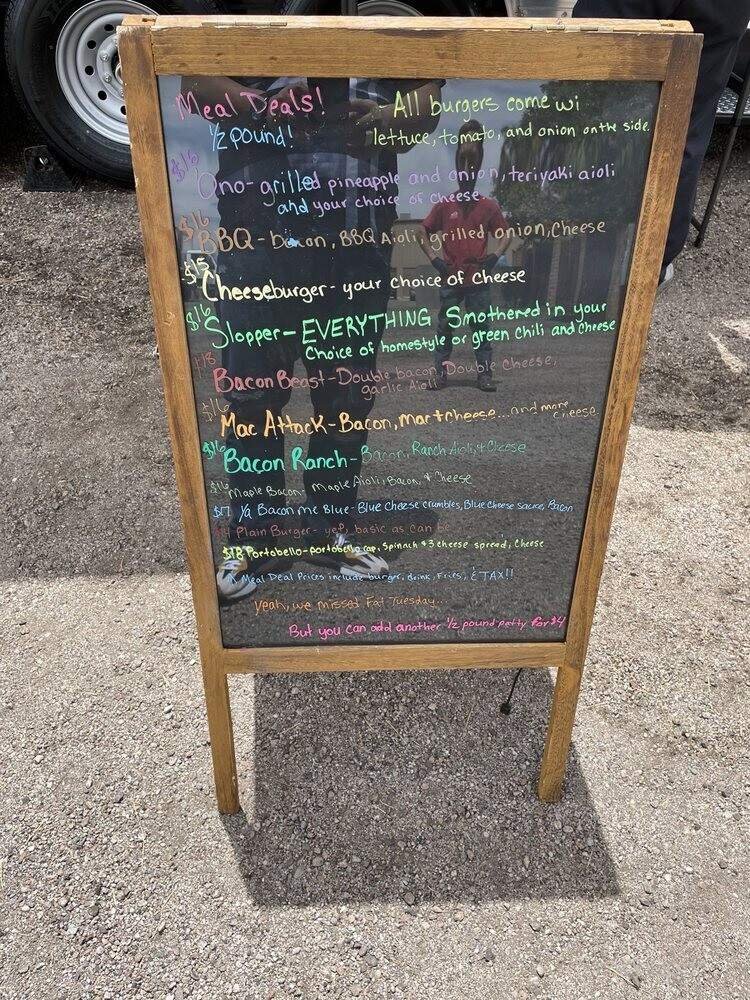 Meal Deals!
1/2 pound!
- All burgers come w/
lettuce, tomato, and onion on the side.
$16 Ono- grilled pineapple and onion, teriyaki aioli
and your choice of cheese.
$16 BBQ - bacon, BBQ Aioli, grilled onion, Cheese
$15 Cheeseburger - your choice of Cheese
$16 Slopper - EVERYTHING Smothered in your
Choice of homestyle or green chili and cheese
$18 Bacon Beast - Double bacon, Double cheese,
garlic Aioli
$16 Mac Attack - Bacon, mac + cheese...and more
cheese.
$16 Bacon Ranch - Bacon, Ranch Aioli, + Cheese
$16 Maple Bacon - Maple Aioli, Bacon, + Cheese
$17 Ya Bacon me Blue - Blue Cheese crumbles, Blue Cheese sauce, Bacon
Plain Burger - yep, basic as can be
$18 Portobello - portobello cap, Spinach + 3 cheese spread, Cheese
* Meal Deal Prices include burger, drink, Fries, & TAX!!
Yeah, we missed Fat Tuesday...
But you can add another 1/2 pound patty for $4